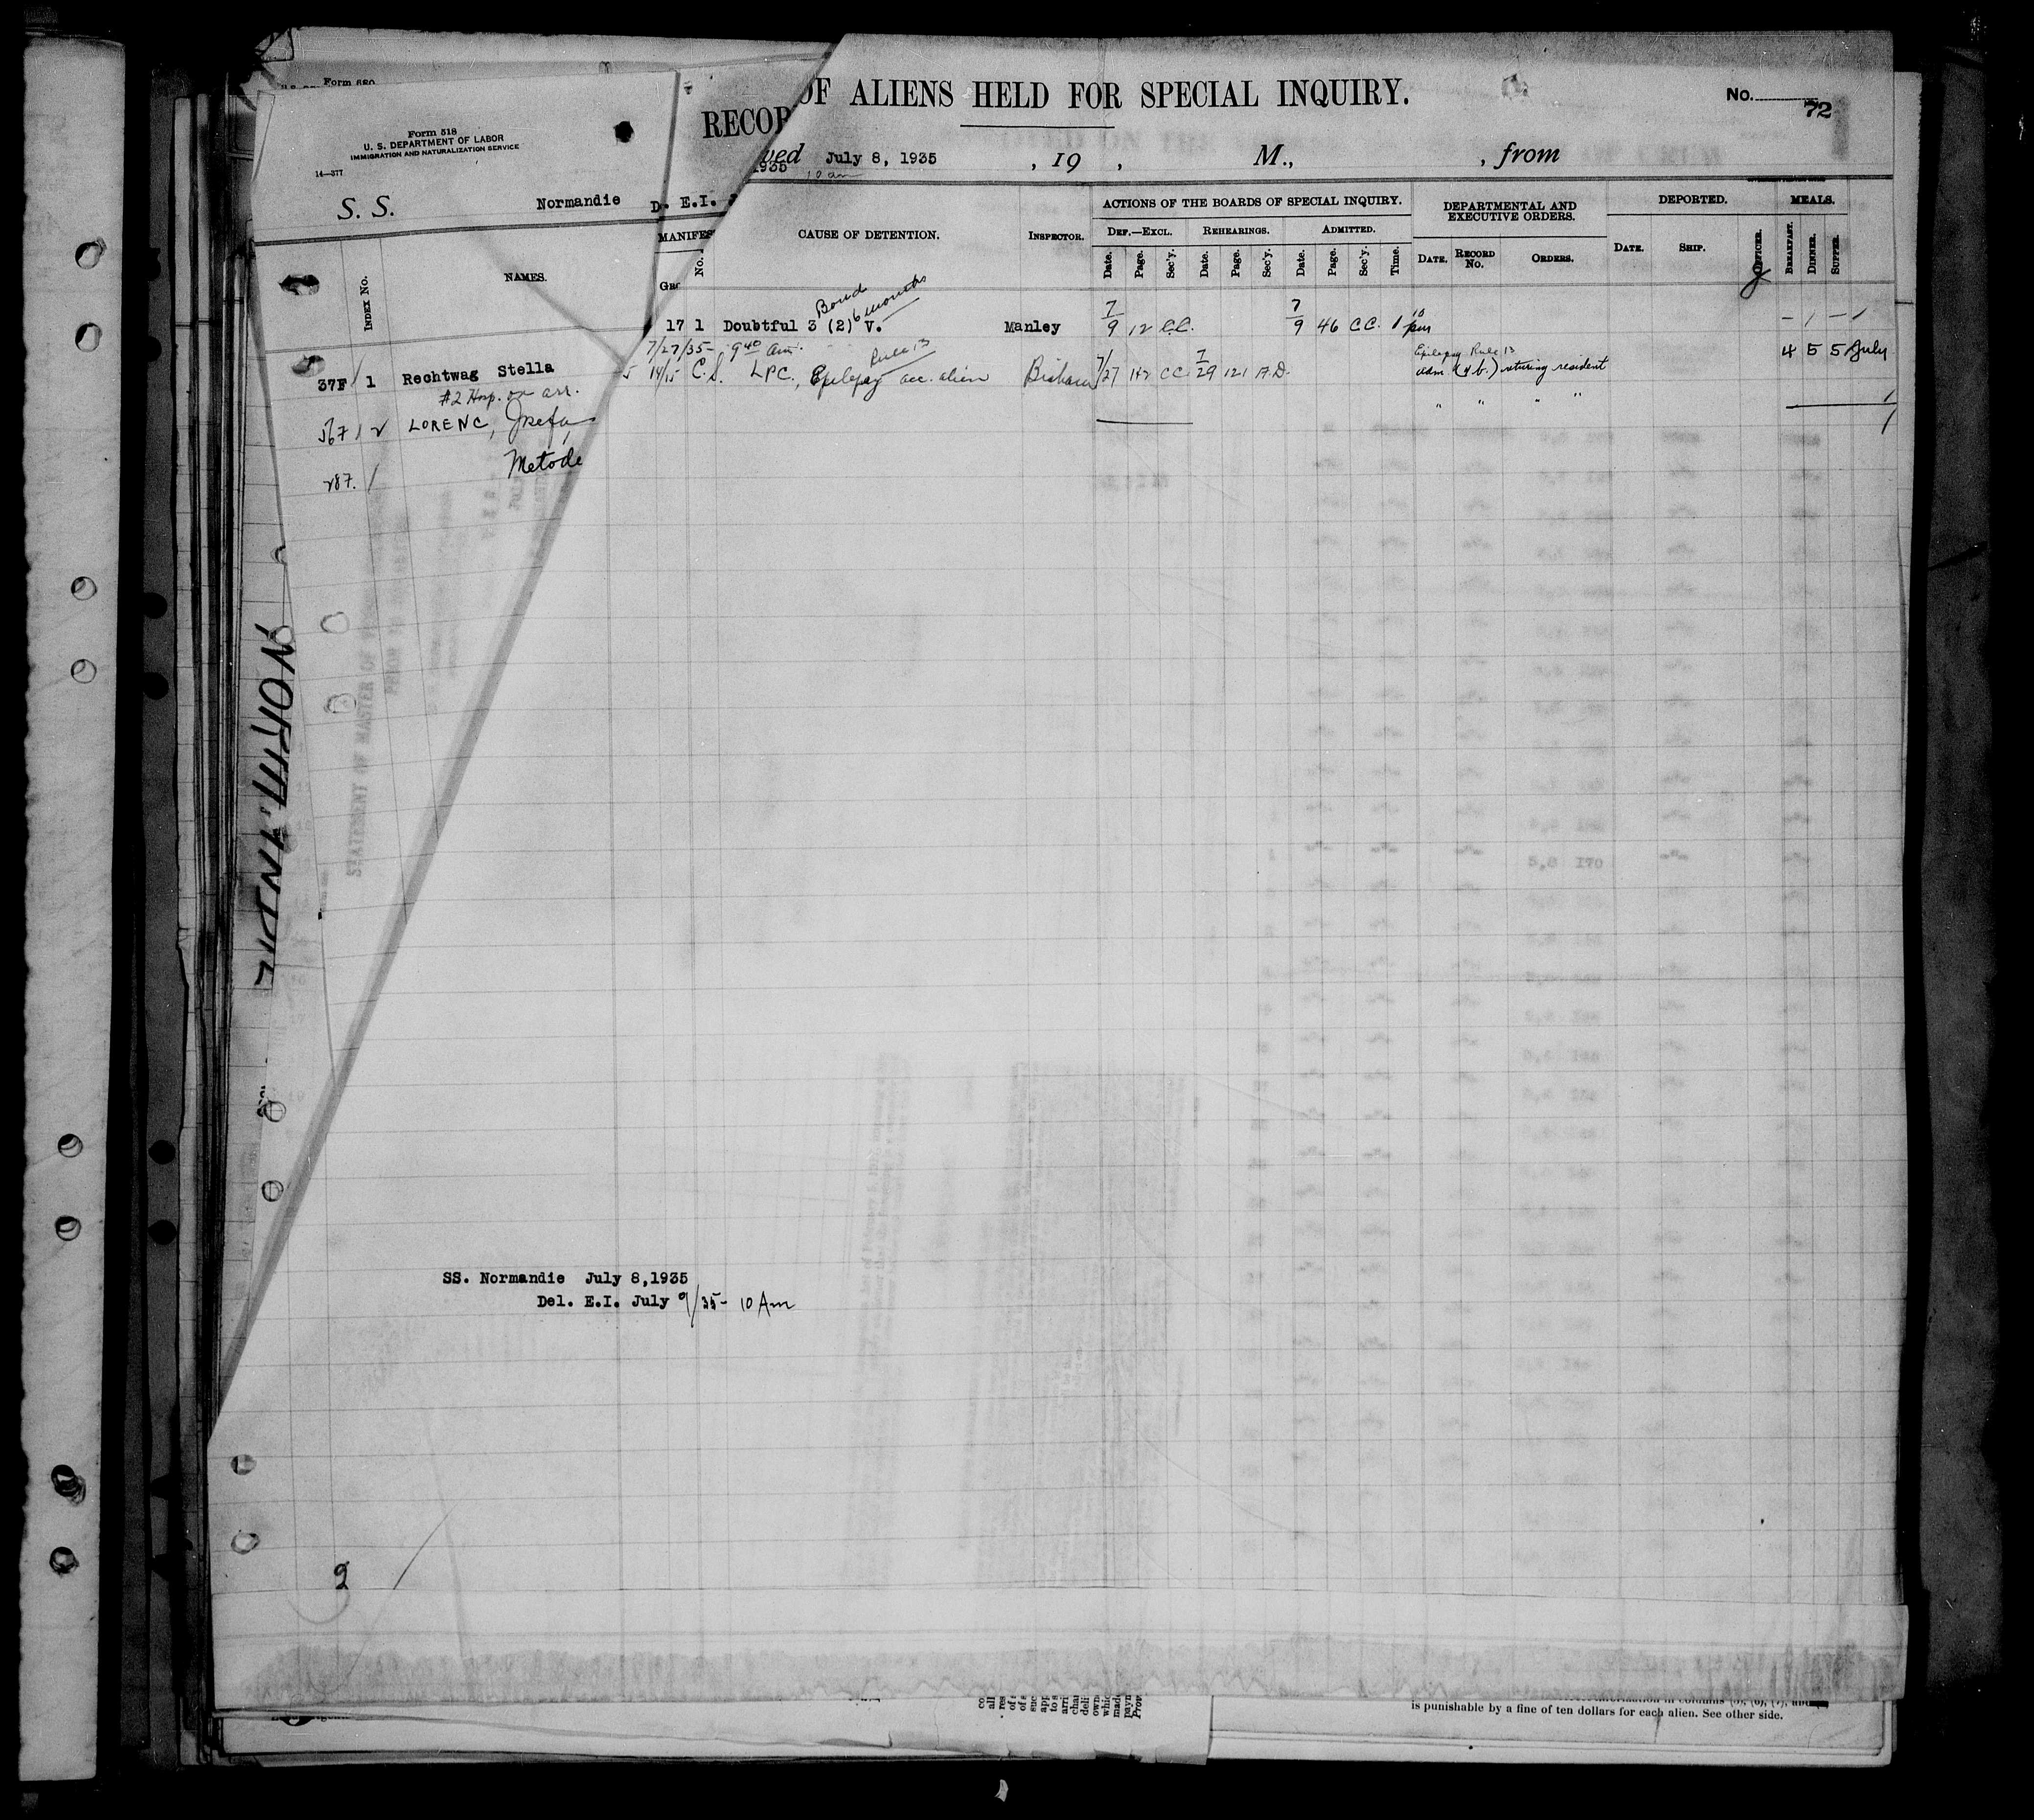 Form 518
U. S. DEPARTMENT OF LABOR
IMMIGRATION AND NATURALIZATION SERVICE
14—377
RECOR OF ALIENS HELD FOR SPECIAL INQUIRY.
No. 72
ved July 8, 1935 , 19 , M., , from
1935 10 am
S. S. Normandie D. E.I.
INDEX No.
NAMES.
MANIFES
No.
CAUSE OF DETENTION.
INSPECTOR.
ACTIONS OF THE BOARDS OF SPECIAL INQUIRY.
DEF.—EXCL. REHEARINGS. ADMITTED.
Date. Page. Sec'y. Date. Page. Sec'y. Date. Page. Sec'y. Time.
DEPARTMENTAL AND EXECUTIVE ORDERS.
DATE. RECORD No. ORDERS.
DEPORTED.
DATE. SHIP. OFFICER.
MEALS.
BREAKFAST. DINNER. SUPPER.
Bond 6 months
17 1 Doubtful 3 (2) V. Manley 7/9 12 C.C. 7/9 46 C.C. 1 10 pm — 1 — 1
37F 1 Rechtwag Stella
#2 Hosp. on arr.
7/27/35 - 9 40 am. Rule 13
5 14/15 C.S. LPC., Epilepsy acc. alien 7/27 142 CC 7/29 121 A.D.
Epilepsy Rule 13
adm. (4 b.) returing resident
4 5 5 July
567 1 2 LORENC, Josefa,
" " " " 1
Metode
287. 1
NORMANDIE
STATEMENT OF MASTER OF
5,8 170
SS. Normandie July 8,1935
Del. E.I. July 9/35 - 10 Am
2
is punishable by a fine of ten dollars for each alien. See other side.